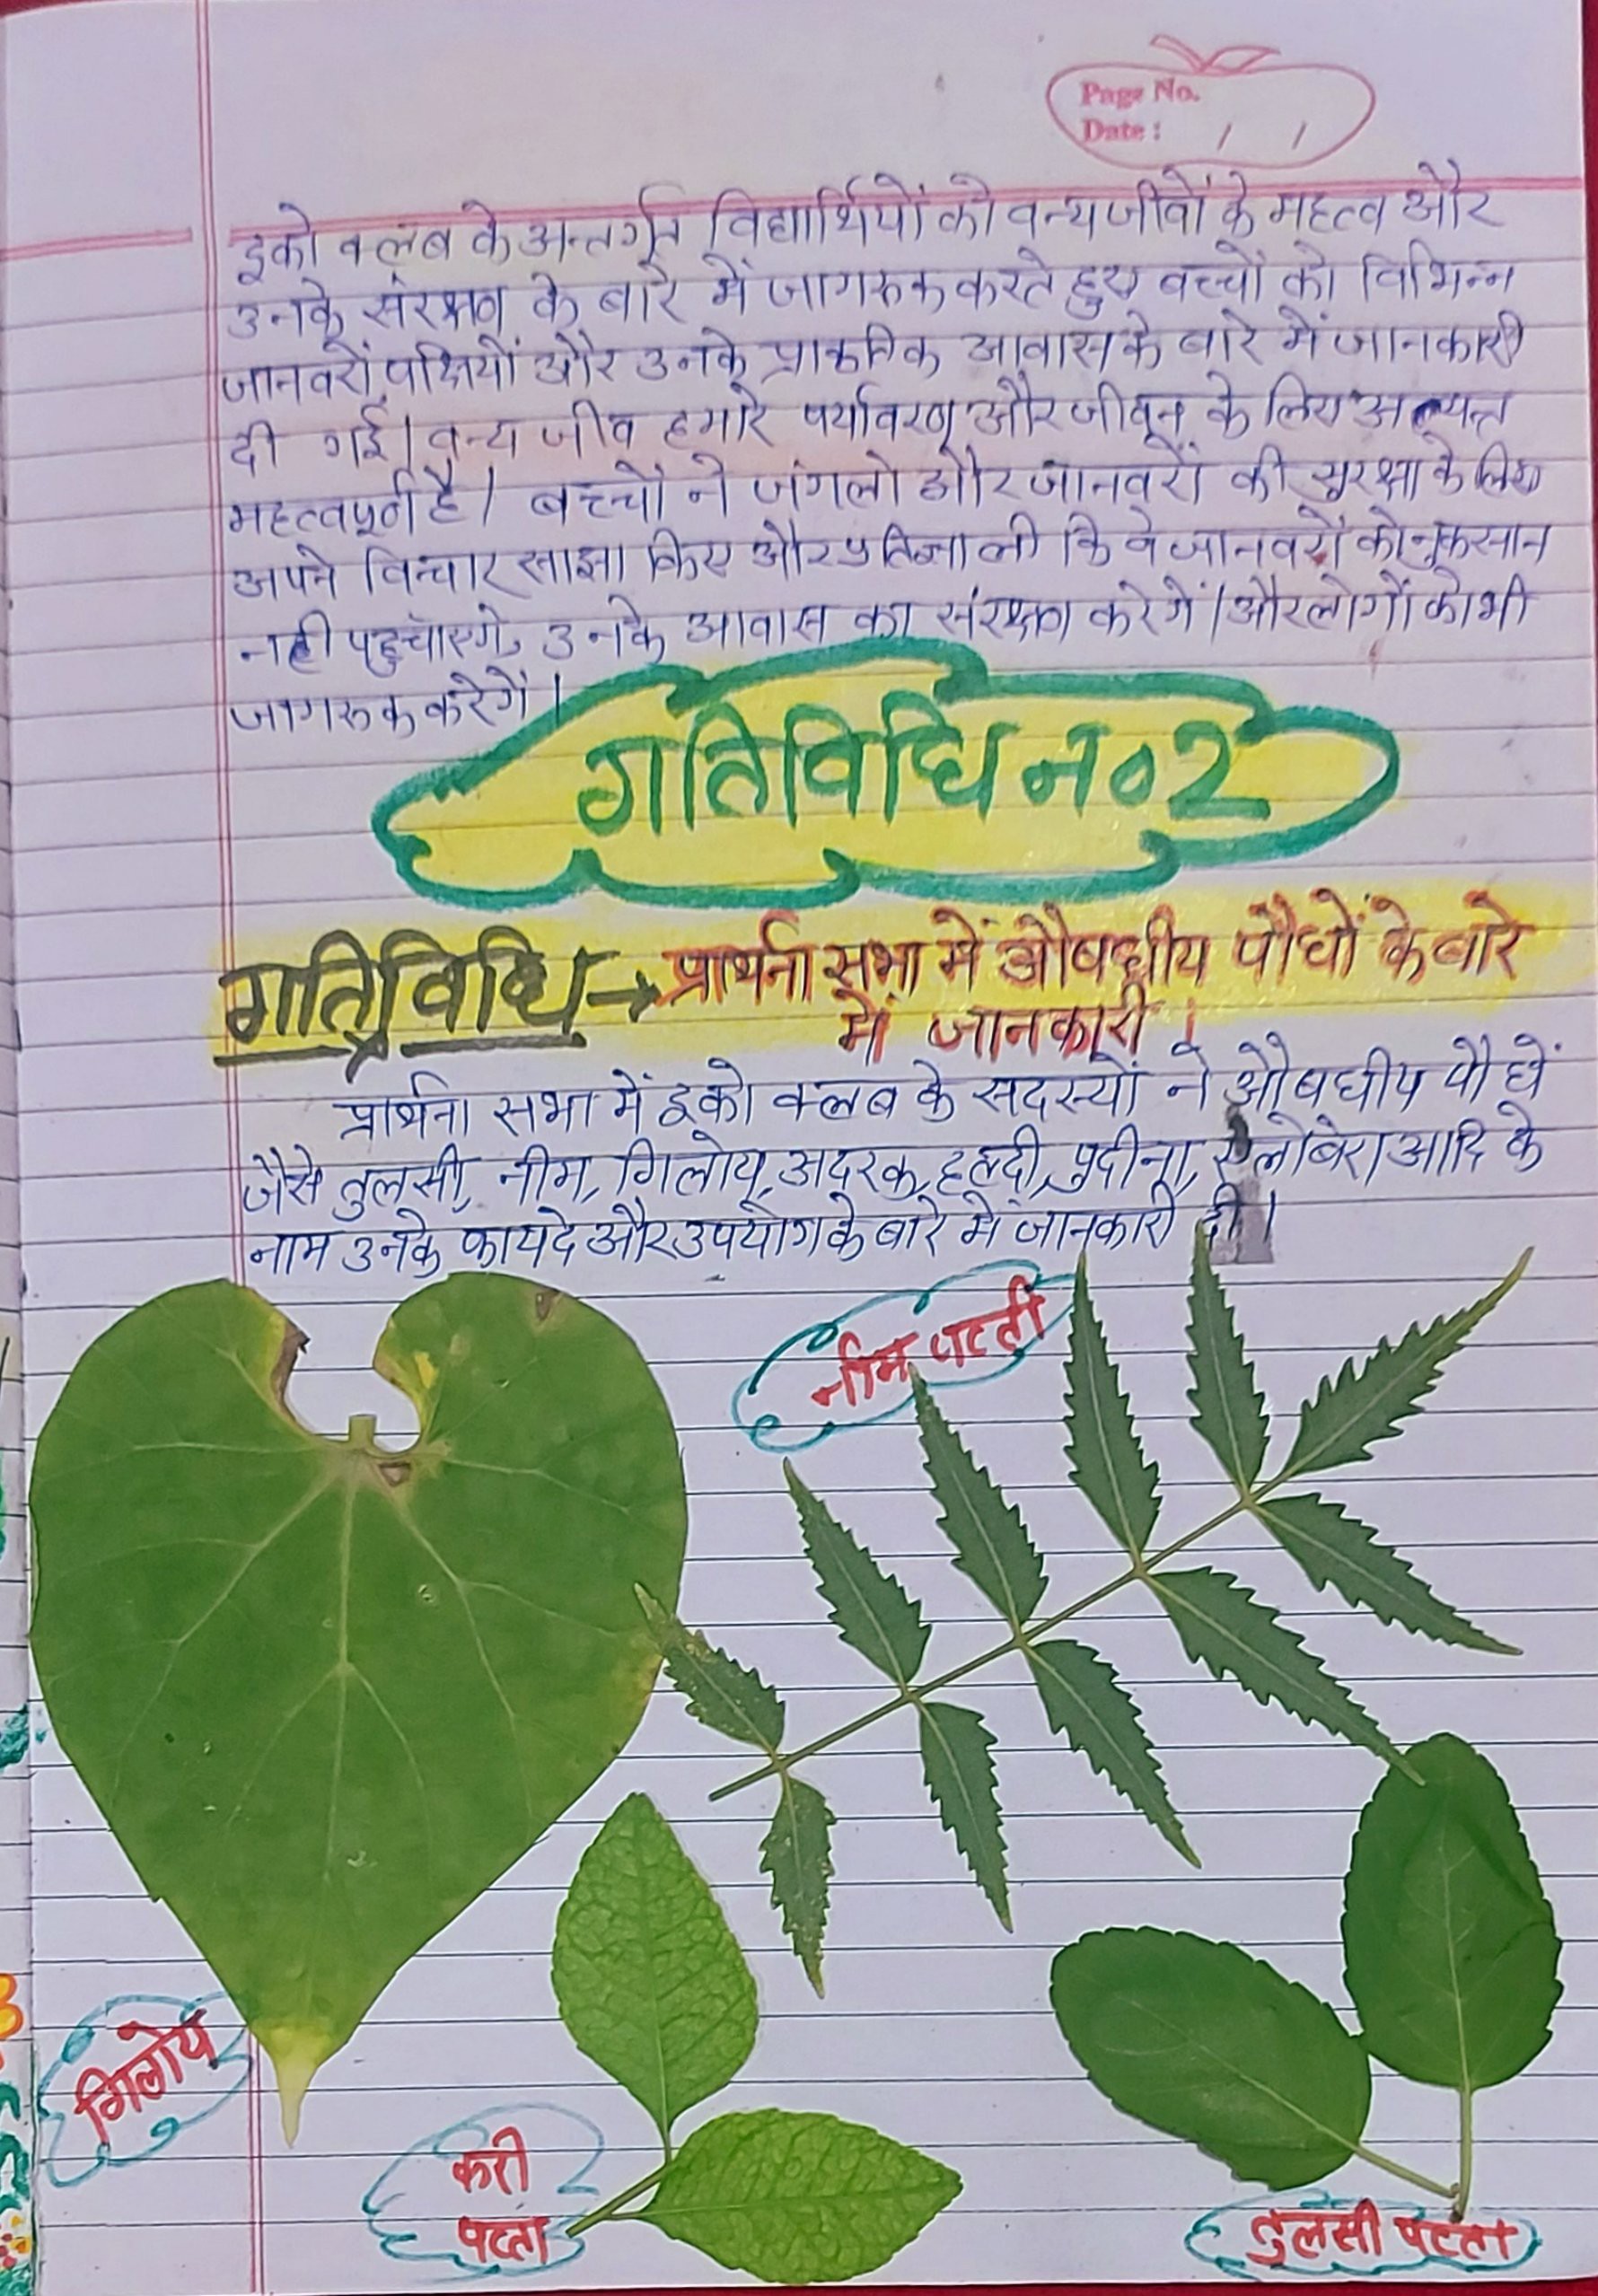 Page No.
Date : / /
इको क्लब के अन्तर्गत विद्यार्थियों को वन्यजीवों के महत्व और
उनके संरक्षण के बारे में जागरूक करते हुए बच्चों को विभिन्न
जानवरों, पक्षियों और उनके प्राकृतिक आवास के बारे में जानकारी
दी गई। वन्य जीव हमारे पर्यावरण और जीवन के लिए अत्यन्त
महत्वपूर्ण है। बच्चों ने जंगलो और जानवरों की सुरक्षा के लिए
अपने विचार साझा किए और प्रतिज्ञा ली कि वे जानवरों को नुकसान
नही पहुचाँएगे, उनके आवास का संरक्षण करेगें। और लोगों को भी
जागरूक करेगें।
गतिविधि न० 2
गतिविधि → प्रार्थना सभा में औषधीय पौधों के बारे
में जानकारी।
प्रार्थना सभा में इको क्लब के सदस्यों ने औषधीय पौधें
जैसे तुलसी, नीम, गिलोय, अदरक, हल्दी, पुदीना, एलोवेरा आदि के
नाम उनके फायदे और उपयोग के बारे मे जानकारी दी।
नीम पत्ती
गिलोय
करी
पत्ता
तुलसी पत्ता